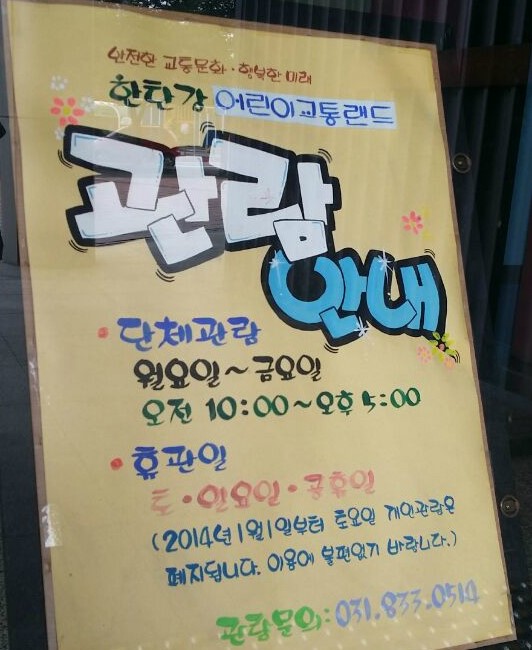 안전한 교통문화·행복한 미래
한탄강 어린이교통랜드
관람
안내
• 단체관람
월요일~금요일
오전 10:00~오후 5:00
• 휴관일
토·일요일·공휴일
(2014년 1월 1일부터 토요일 개인관람은
폐지됩니다. 이용에 불편없기 바랍니다.)
관람문의: 031.833.0514